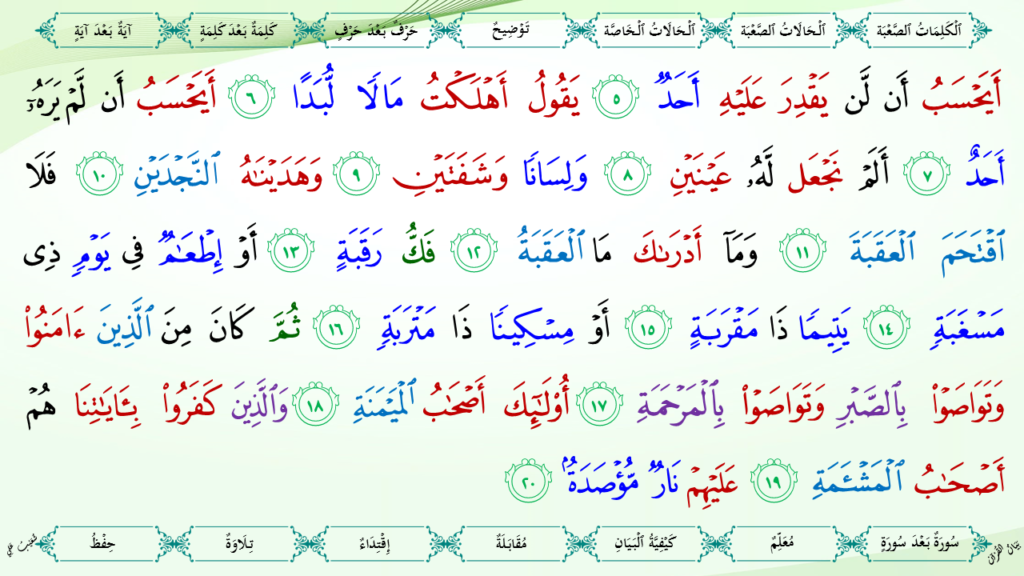 ٱلْكَلِمَاتُ الصَّعْبَة ٱلْحَالَاتُ الصَّعْبَة ٱلْحَالَاتُ الْخَاصَّة تَوْضِيحٌ حَرْفٌ بَعْدَ حَرْفٍ كَلِمَةٌ بَعْدَ كَلِمَةٍ آيَةٌ بَعْدَ آيَةٍ
أَيَحْسَبُ أَن لَّن يَقْدِرَ عَلَيْهِ أَحَدٌ ٥ يَقُولُ أَهْلَكْتُ مَالًا لُّبَدًا ٦ أَيَحْسَبُ أَن لَّمْ يَرَهُۥٓ
أَحَدٌ ٧ أَلَمْ نَجْعَل لَّهُۥ عَيْنَيْنِ ٨ وَلِسَانًا وَشَفَتَيْنِ ٩ وَهَدَيْنَٰهُ النَّجْدَيْنِ ١٠ فَلَا
ٱقْتَحَمَ ٱلْعَقَبَةَ ١١ وَمَآ أَدْرَىٰكَ مَا ٱلْعَقَبَةُ ١٢ فَكُّ رَقَبَةٍ ١٣ أَوْ إِطْعَٰمٌ فِى يَوْمٍ ذِى
مَسْغَبَةٍ ١٤ يَتِيمًا ذَا مَقْرَبَةٍ ١٥ أَوْ مِسْكِينًا ذَا مَتْرَبَةٍ ١٦ ثُمَّ كَانَ مِنَ ٱلَّذِينَ ءَامَنُوا۟
وَتَوَاصَوْا۟ بِٱلصَّبْرِ وَتَوَاصَوْا۟ بِٱلْمَرْحَمَةِ ١٧ أُو۟لَٰٓئِكَ أَصْحَٰبُ ٱلْمَيْمَنَةِ ١٨ وَٱلَّذِينَ كَفَرُوا۟ بِـَٔايَٰتِنَا هُمْ
أَصْحَٰبُ ٱلْمَشْـَٔمَةِ ١٩ عَلَيْهِمْ نَارٌ مُّؤْصَدَةٌۢ ٢٠
سُورَةٌ بَعْدَ سُورَةٍ مُعَلِّمٌ كَيْفِيَّةُ الْبَيَانِ مُقَابَلَةٌ إِقْتِدَاءٌ تِلَاوَةٌ حِفْظُ